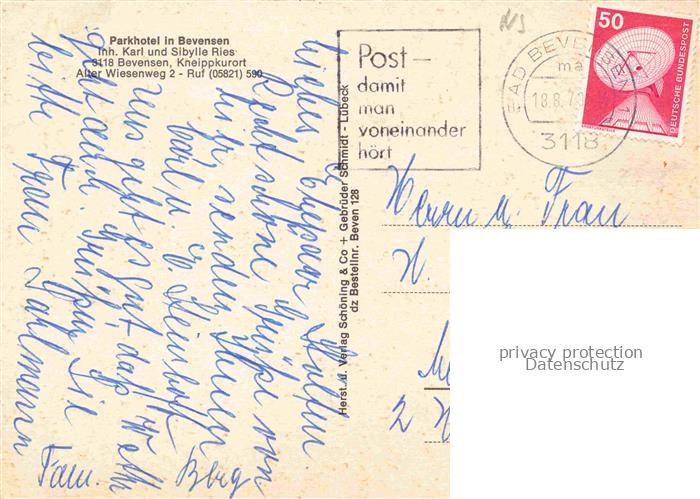 Parkhotel in Bevensen
Inh. Karl und Sibylle Ries
3118 Bevensen, Kneippkurort
Alter Wiesenweg 2 - Ruf (05821) 590
Post -
damit
man
voneinander
hört
BAD BEVENSEN 1
ma
18.8.7
3118
50
DEUTSCHE BUNDESPOST
Liebes Ehepaar
Recht schöne Grüße von
hier senden Ihnen
Karl u.
uns geht es gut, daß
auch. Grüßen Sie
bitte Frau Dahlmann
Fam. Berg
Herst. u. Verlag Schöning & Co + Gebrüder Schmidt - Lübeck
dz Bestellnr. Beven 128
Herrn u. Frau
H.
2 H
privacy protection
Datenschutz